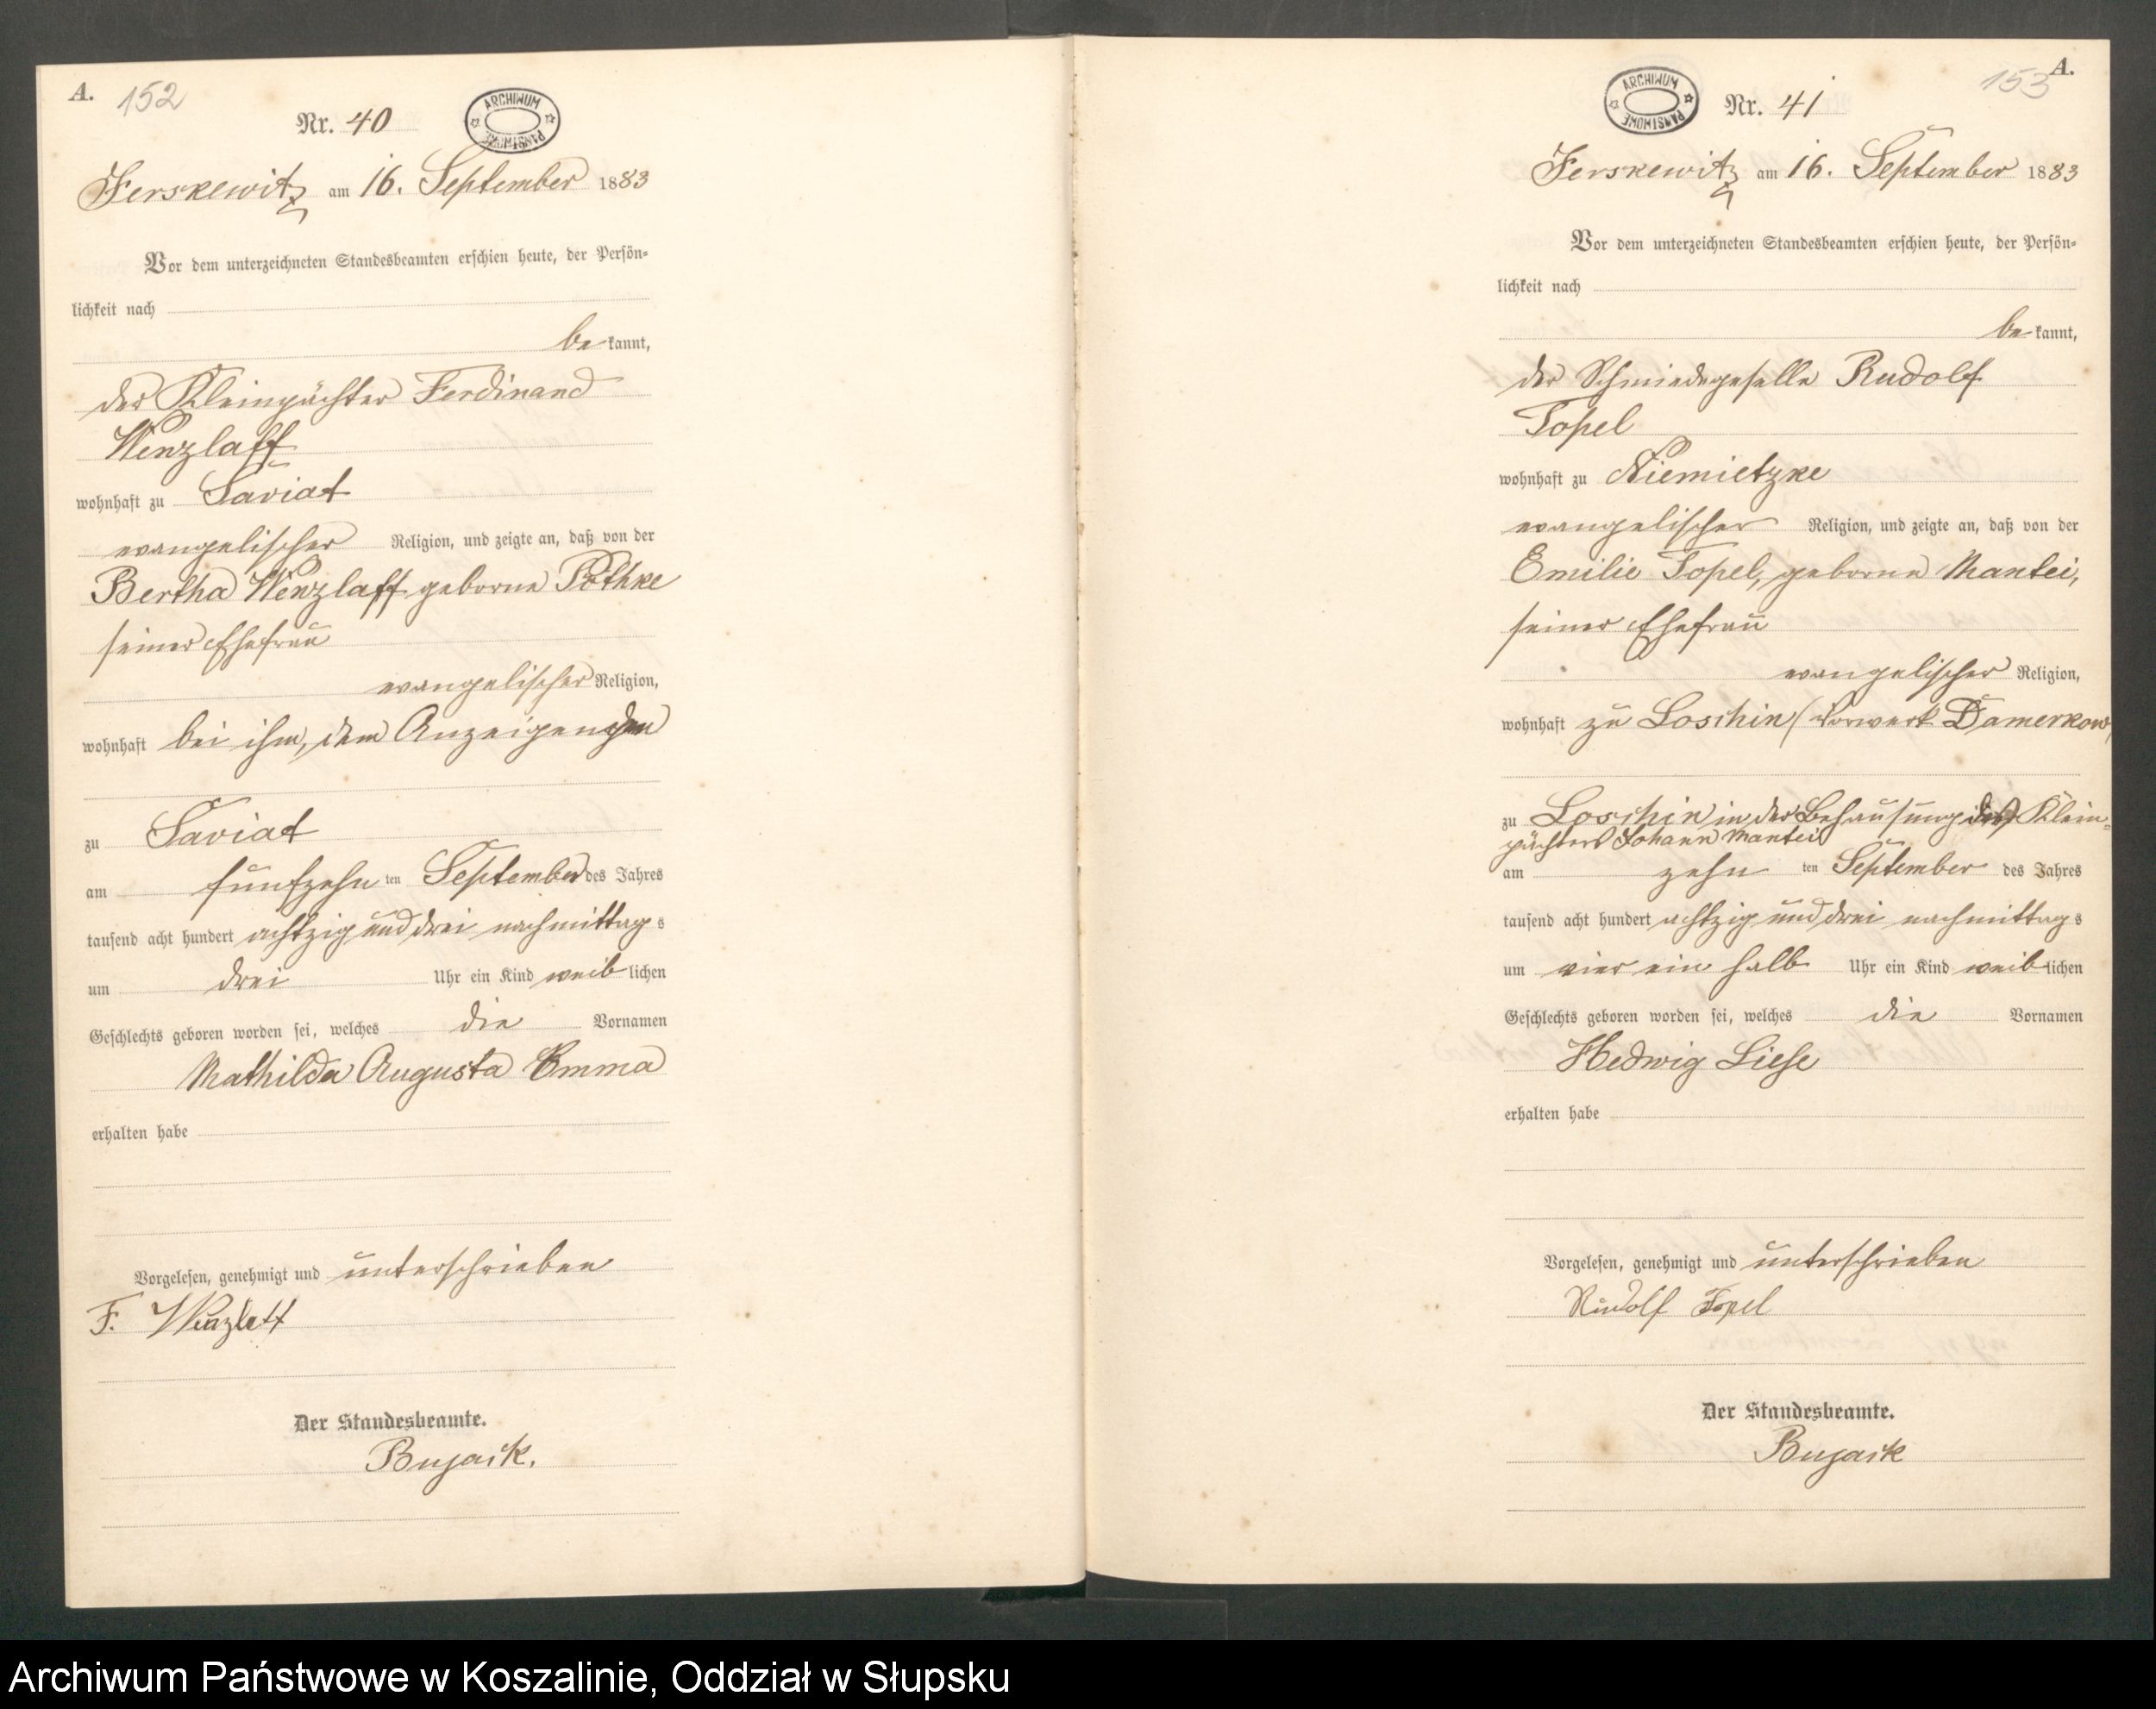 A. 152
Nr. 40
ARCHIWUM PAŃSTWOWE
Jerskewitz am 16. September 1883
Vor dem unterzeichneten Standesbeamten erschien heute, der Persön-
lichkeit nach
be kannt,
der Kleinpächter Ferdinand
Wenzlaff
wohnhaft zu Saviat
evangelischer Religion, und zeigte an, daß von der
Bertha Wenzlaff geborne Pöthke
seiner Ehefrau
evangelischer Religion,
wohnhaft bei ihm, dem Anzeigenden
zu Saviat
am fünfzehn ten September des Jahres
tausend acht hundert achtzig und drei nachmittag s
um drei Uhr ein Kind weib lichen
Geschlechts geboren worden sei, welches die Vornamen
Mathilda Augusta Emma
erhalten habe
Vorgelesen, genehmigt und unterschrieben
F. Wenzlaff
Der Standesbeamte.
Bujack.
153 A.
ARCHIWUM PAŃSTWOWE
Nr. 41
Jerskewitz am 16. September 1883
Vor dem unterzeichneten Standesbeamten erschien heute, der Persön-
lichkeit nach
be kannt,
der Schmiedegeselle Rudolf
Topel
wohnhaft zu Niemietzke
evangelischer Religion, und zeigte an, daß von der
Emilie Topel, geborne Mantei,
seiner Ehefrau
evangelischer Religion,
wohnhaft zu Loschin (Vorwerk Damerkow)
zu Loschin in der Behausung des Klein-
pächters Johann Mantei
am zehn ten September des Jahres
tausend acht hundert achtzig und drei nachmittag s
um vier ein halb Uhr ein Kind weib lichen
Geschlechts geboren worden sei, welches die Vornamen
Hedwig Liese
erhalten habe
Vorgelesen, genehmigt und unterschrieben
Rudolf Topel
Der Standesbeamte.
Bujack
Archiwum Państwowe w Koszalinie, Oddział w Słupsku